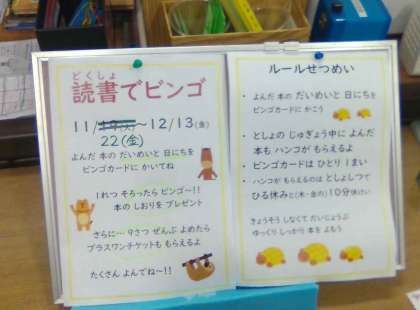 どくしょ
読書でビンゴ
11/19(火)〜12/13(金)
22(金)
よんだ 本の だいめいと 日にちを
ビンゴカードに かいてね
1れつ そろったら ビンゴ〜!!
本の しおりを プレゼント
さらに… 9さつ ぜんぶ よめたら
プラスワンチケットも もらえるよ
たくさん よんでね〜!!
ルールせつめい
• よんだ 本の だいめいと 日にちを
ビンゴカードに かこう
• としょの じゅぎょう中に よんだ
本も ハンコが もらえるよ
• ビンゴカードは ひとり 1まい
• ハンコが もらえるのは としょしつで
ひる休みと(木・金の)10分休けい
きょうそう しなくて だいじょうぶ
ゆっくり しっかり 本を よもう